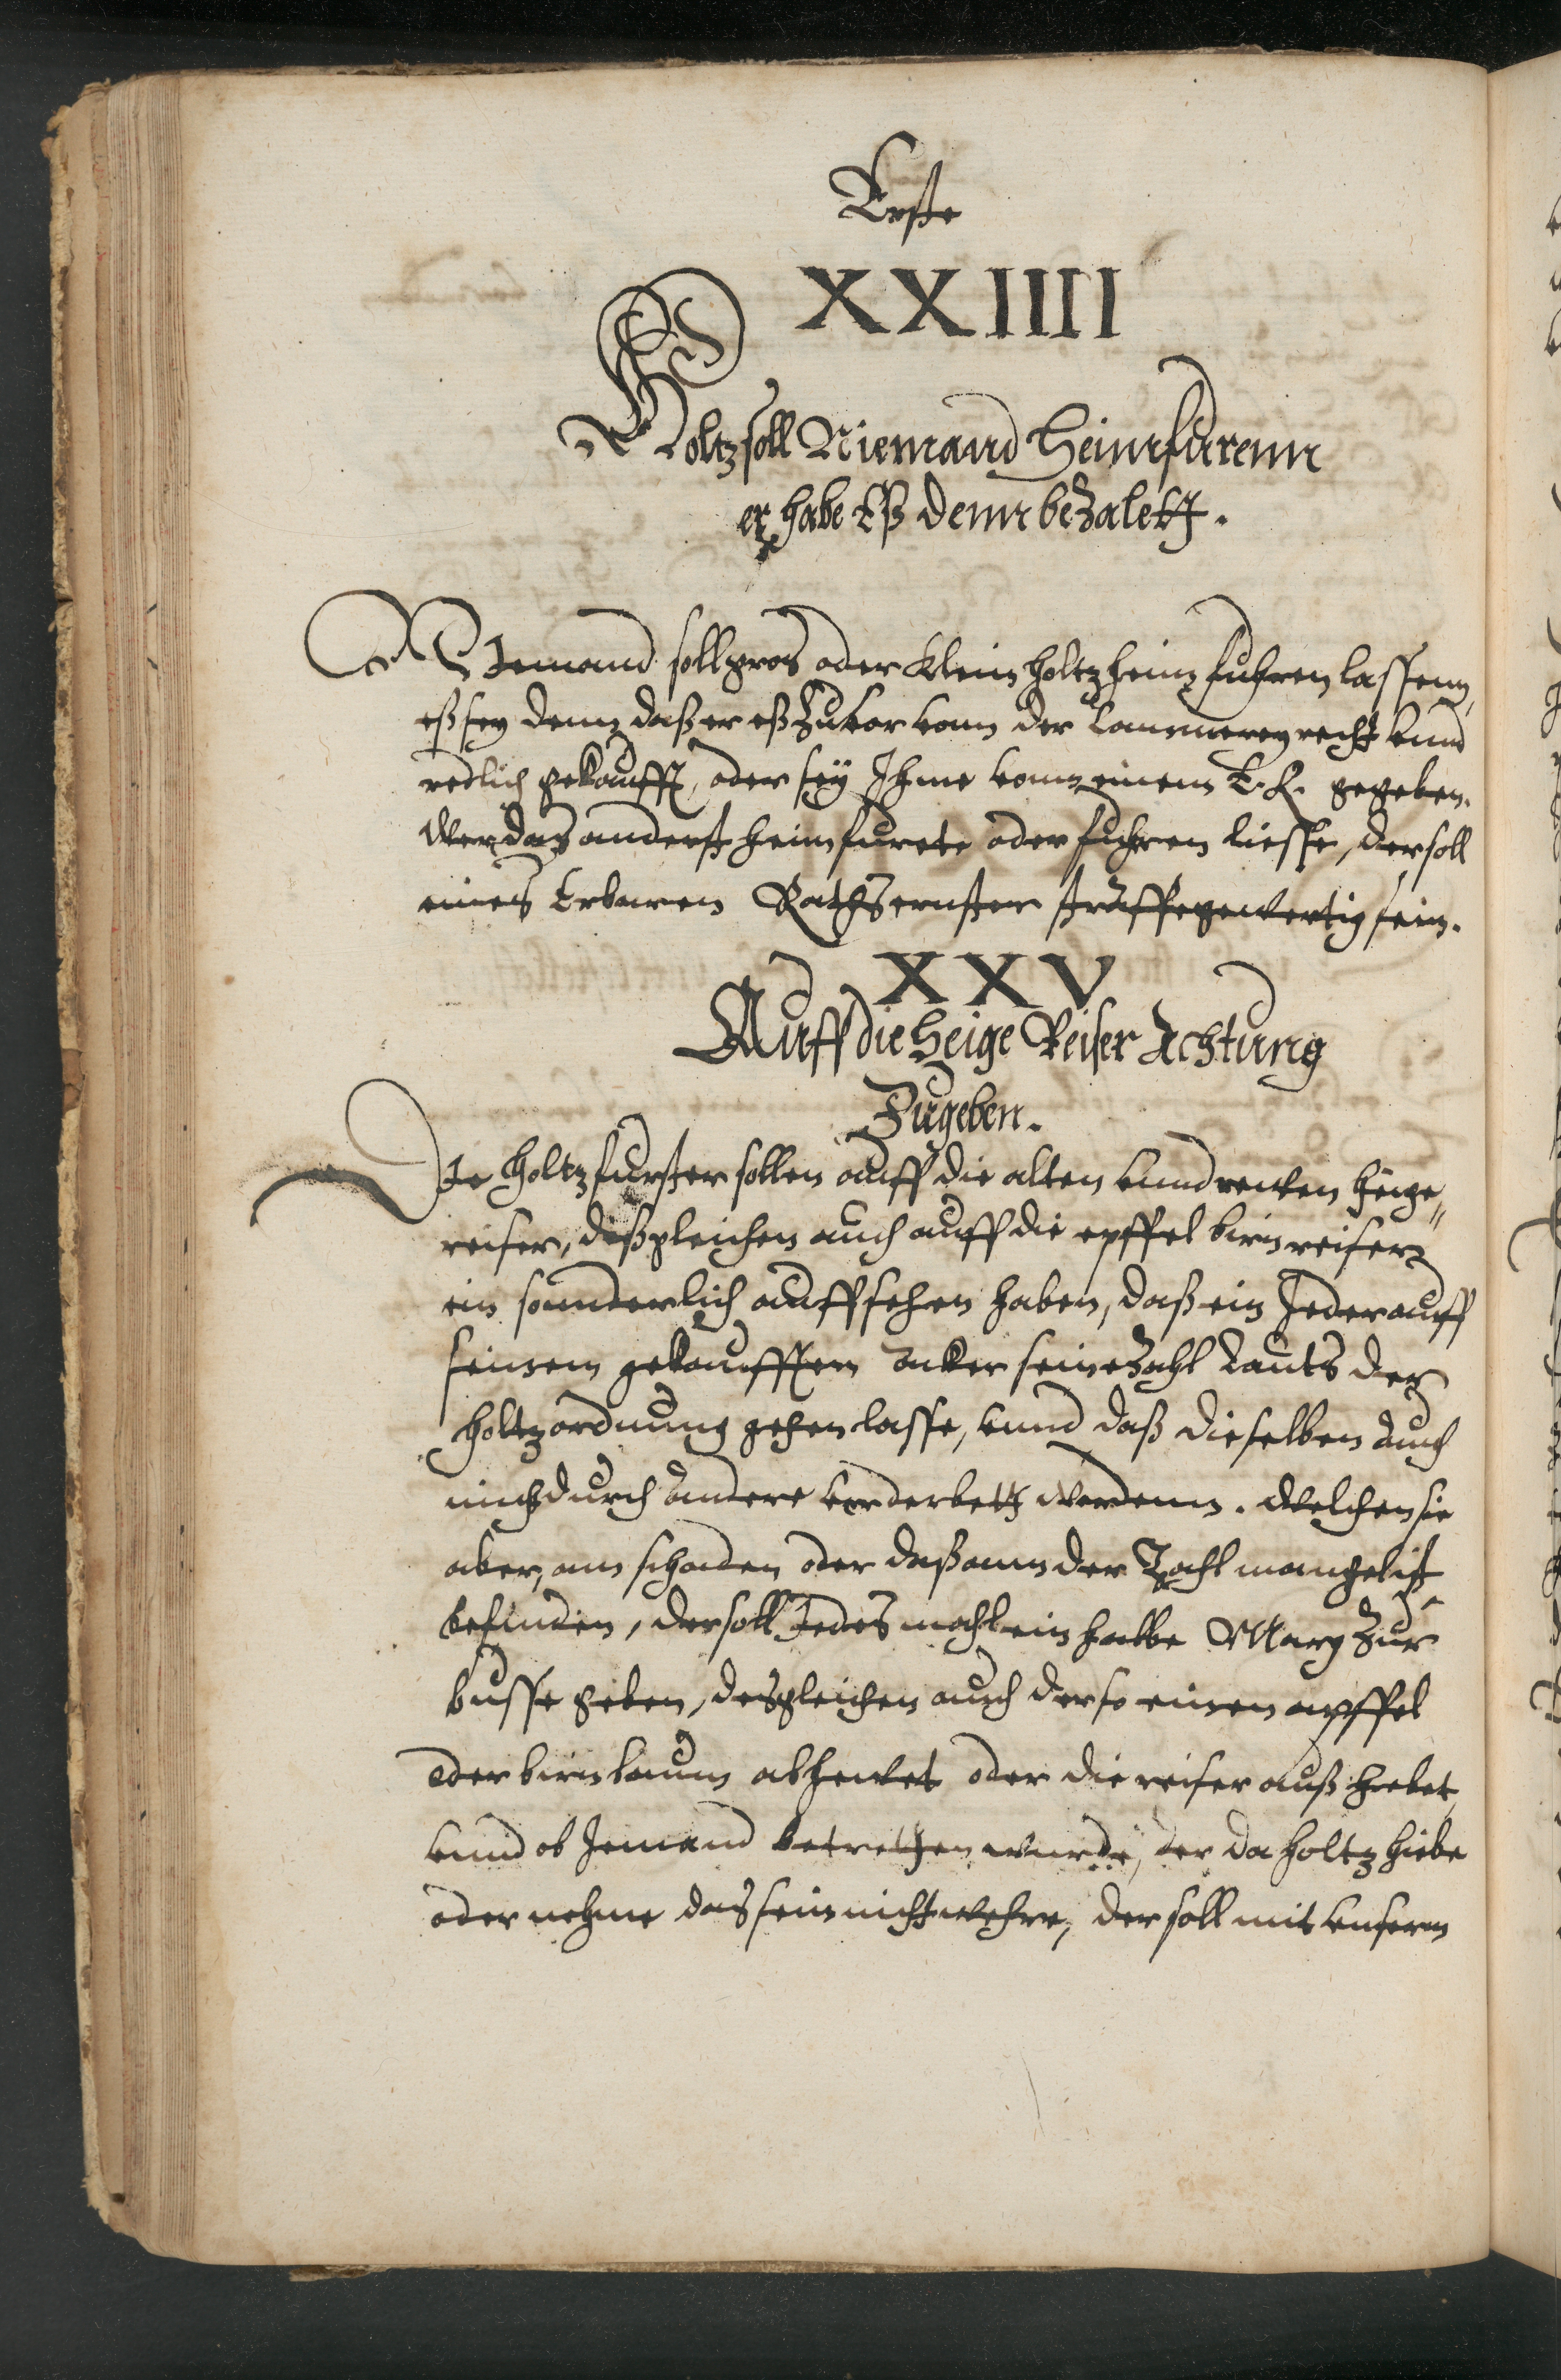 Erste
XXIIII
Holtz soll Niemand Heimfurenn
er habe Eß denn bezalett.
Niemand soll gros oder klein holtz heim fuhren lassenn,
eß sey denn daß er eß zuvor vonn der Cammerey recht vnnd
redlich gekaufft, oder sey Ihme vonn einem E. R. gegeben.
Wer das anderst heim furete oder fuhren liesse, der soll
eines Erbaren Raths ernster straffe gewertig sein.
XXV
Auff die Heige Reiser Achtung
Zugeben.
Die holtzfurster sollen auff die alten vnnd newen heige„
reiser, deßgleichen auch auff die epffel birn reiser
ein sonnderlich auffsehen haben, daß ein Jeder auff
seinem gekaufften acker seine Zahl Lauts der
holtzordnung gehen lasse, vnnd daß dieselben auch
nicht durch andere vorderbett werdenn. Welchen sie
aber, am schaden oder daß ann der Zahl mangel ist
befinden, der soll Jedes mahl ein halbe Marg zur
busse geben, desgleichen auch der so einen apffel
oder birnbaum abhewet oder die reiser auß hebet,
vnnd ob Jemand betretten wurde, der da holtz hiebe
oder nehme das sein nicht wehre, der soll mit vnserm